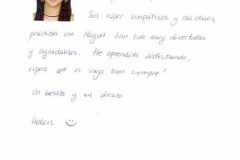 Son súper simpáticos y las clases
prácticas con Miguel han sido muy divertidas
y agradables. He aprendido disfrutando,
espero que os vaya bien siempre!
Un besito y un abrazo.
Helen ☺